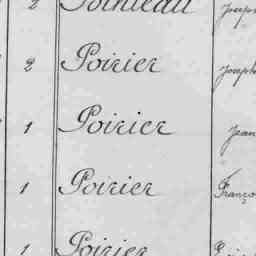 2 Pointeau Joseph
2 Poirier Joseph
1 Poirier Jean
1 Poirier Franço
1 Poirier